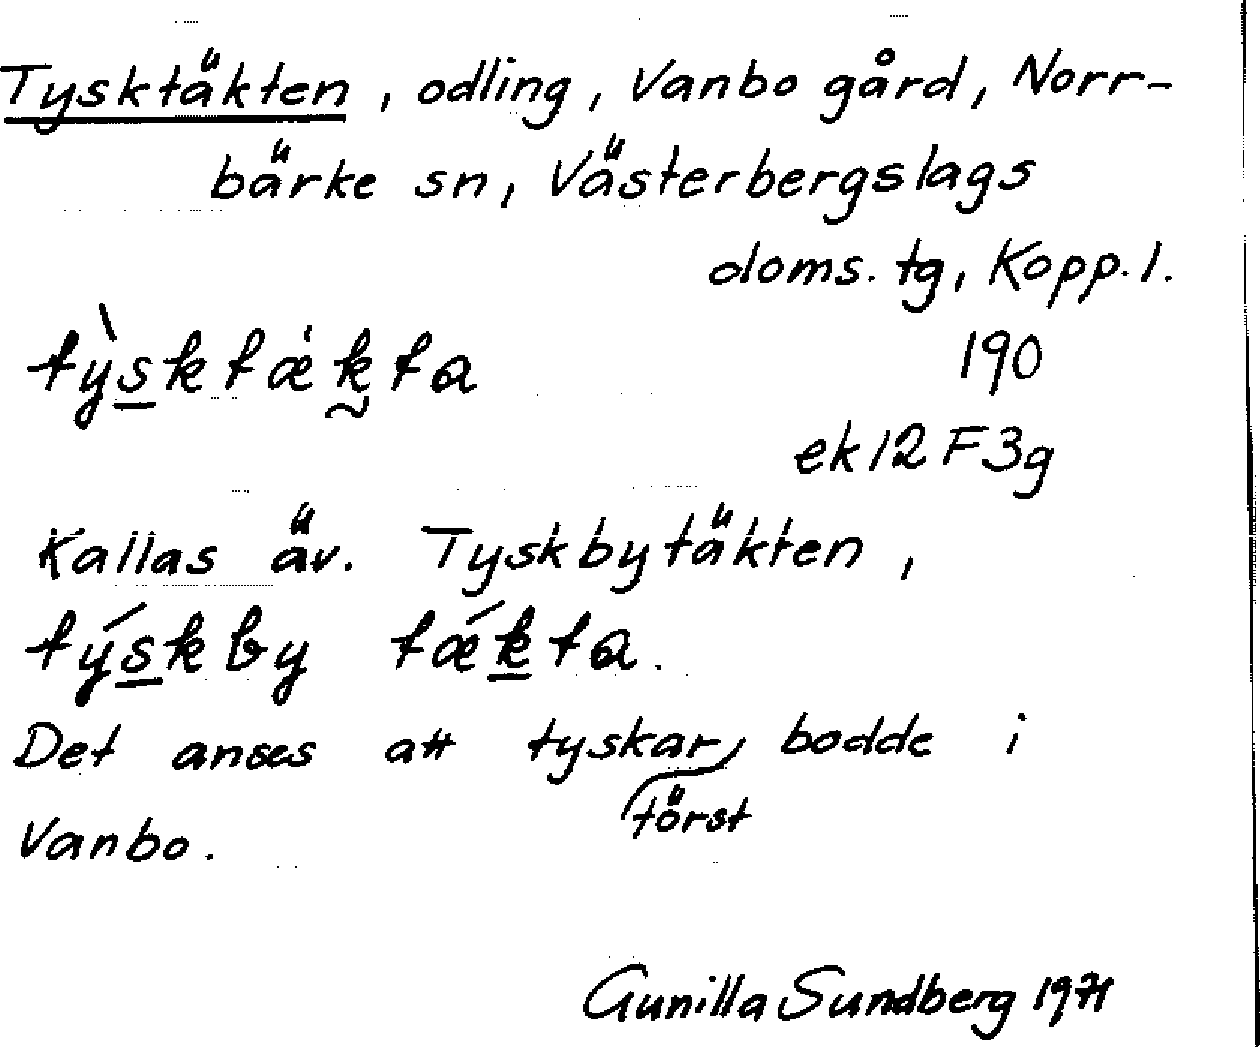 Tysktäkten, odling, Vanbo gård, Norr-
bärke sn, Västerbergslags
doms. tg, Kopp. l.
tỳsktǽkta 190
ek 12 F 3g
Kallas äv. Tyskbytäkten,
týskby tǽkta.
Det anses att tyskar bodde i
först
Vanbo.
Gunilla Sundberg 1971